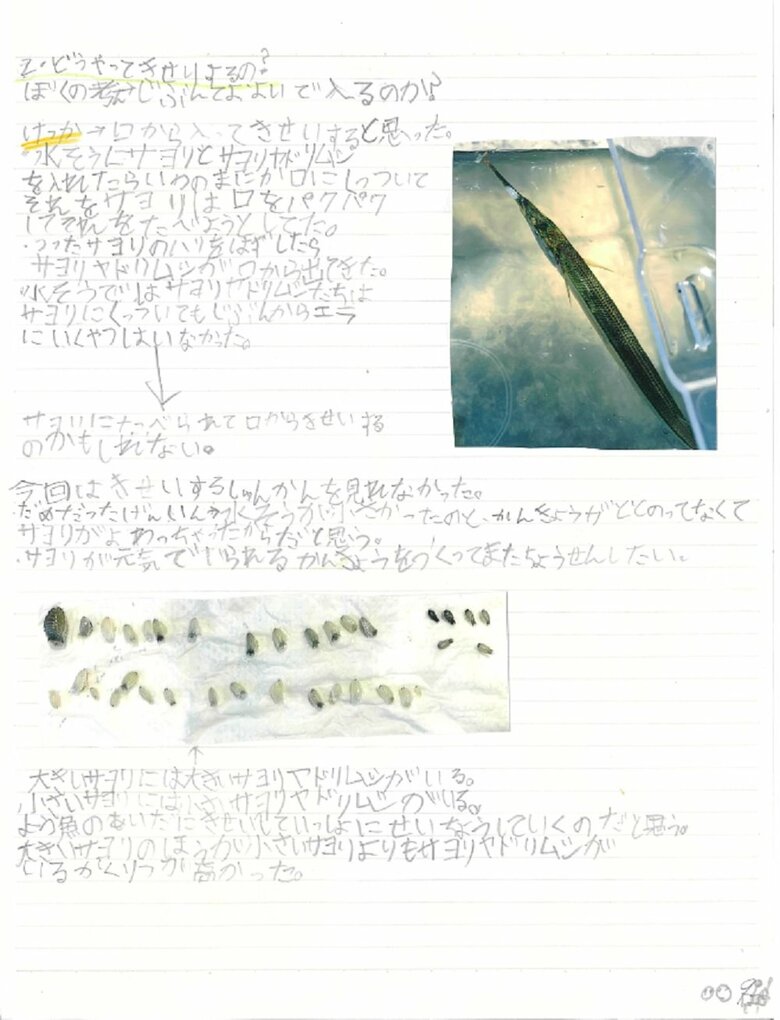 2.どうやってきせいするの?
ぼくの考え→じぶんでおよいで入るのか?
けっか→口から入ってきせいすると思った。
・水そうにサヨリとサヨリヤドリムシ
を入れたらいつのまにか口にくっついて
それをサヨリは口をパクパク
してそれをたべようとしてた。
・つったサヨリのハリをはずしたら
サヨリヤドリムシが口から出てきた。
・水そうではサヨリヤドリムシたちは
サヨリにくっついてもじぶんからエラ
にいくやつはいなかった。
サヨリにたべられて口からきせいする
のかもしれない。
今回はきせいするしゅんかんを見れなかった。
・だめだったげんいんが水そうが小さかったのと、かんきょうがととのってなくて
サヨリがよわっちゃったからだと思う。
・サヨリが元気でいられるかんきょうをつくってまたちょうせんしたい。
↑
大きいサヨリには大きいサヨリヤドリムシがいる。
小さいサヨリには小さいサヨリヤドリムシのがいる。
よう魚のあいだにきせいしていっしょにせいちょうしていくのだと思う。
大きいサヨリのほうが小さいサヨリよりもサヨリヤドリムシが
いるかくりつが高かった。